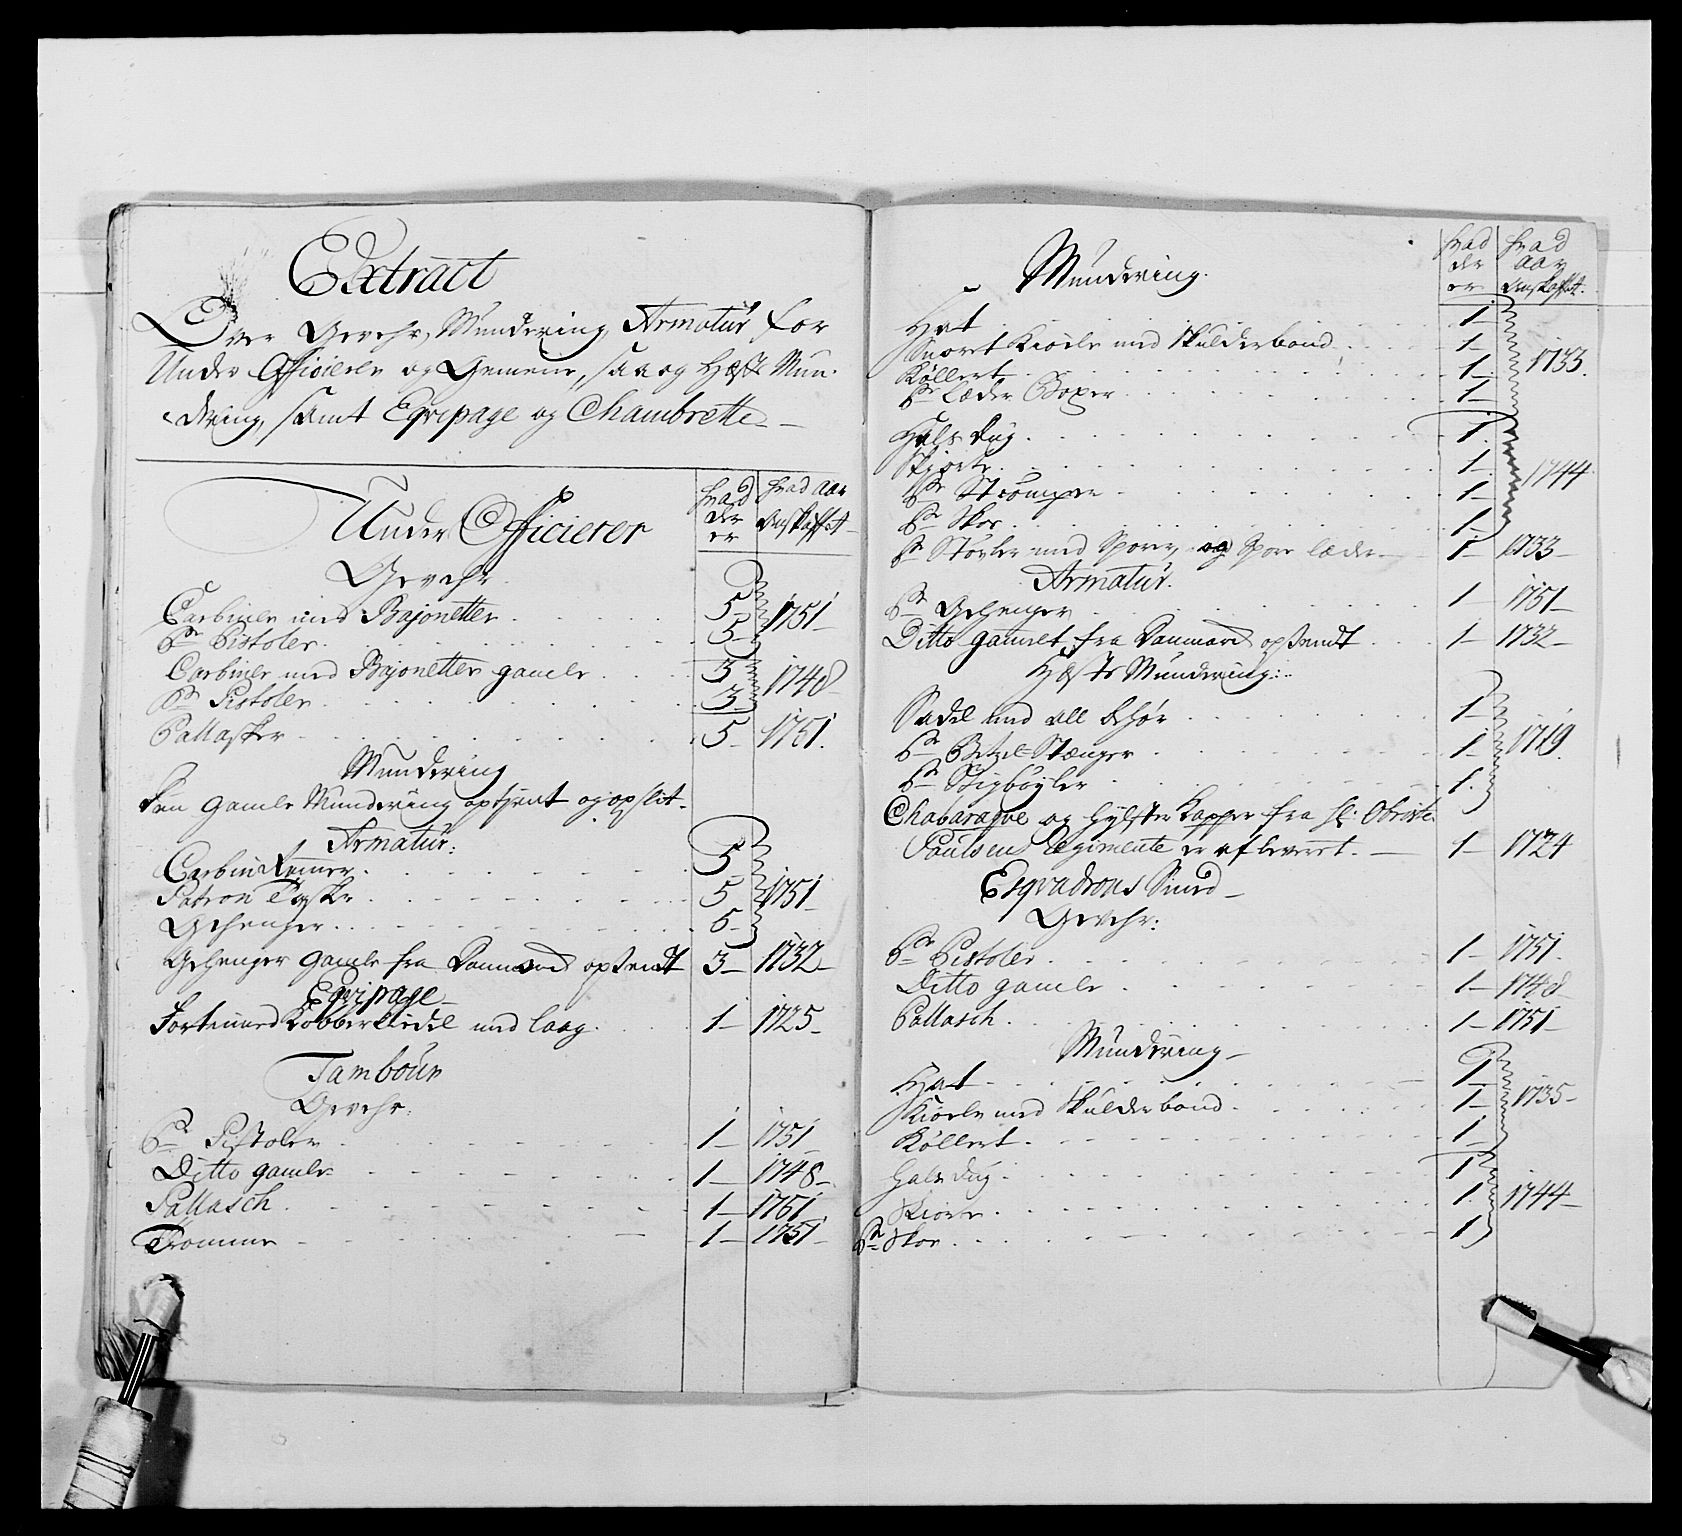 Extract
Over Gevehr, Mundering, Armatur for
Under Officierer og Gemene, saa og Hæste Mun-
dring, samt Eqvipage og Chambrette
Under Officierer
hvad der er
hvad aar Anskaffet
Gevehr
Carbiner med Bajonetter 5
Pr Pistoler 5 1751
Carbiner med Bajonetter gamle 3
Pr Pistoler 3 1748
Pallasker 5 1751
Mundering
Den Gamle Mundering optjent og opslit.
Armatur:
Carbin Remer 5
Patron Taske 5 1751
Gehenger 5
Gehenger Gamle fra Danmarck opsendt 3 1732
Eqvipage
Fortinned Kobber Kidel med laag 1 1725
Tambour
Gevehr:
Pr Pistoler 1 1751
Ditto gamle 1 1748
Pallasch 1 1751
Tromme 1 1751
Mundering
hvad der er
hvad aar Anskaffet
Hat 1
Snoret Kiole med Skulderbond 1
Køllert 1 1733
Pr Læder Boxer 1
Hals Dug 1
Skjorte 1 1744
Pr Strømper 1
Pr Skoe 1
Pr Støvler med Sporer og Spore læder 1 1733
Armatur
Pr Gehenger 1 1751
Ditto gammelt fra Danmarck opsendt 1 1732
Hæste Mundering:
Sadel med all behør 1
Pr Betzel Stænger 1 1719
Pr Stigbøyler 1
Chabaraqve og Hylster Kapper fra Hl: Obriste
Paulsens Regimente er afleveret. 1 1724
Esqvadrons Smed
Gevehr:
Pr Pistoler 1 1751
Ditto gamle 1 1748
Pallasch 1 1751
Mundering
Hat 1
Kiole med Skulderbond 1 1735
Køllert 1
Hals Dug 1
Skiorte 1 1744
Pr Skoe 1